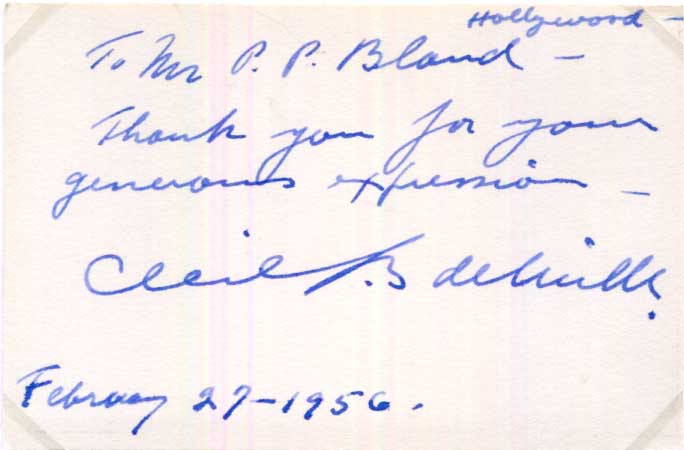 Hollywood –
To Mr P. P. Bland –
Thank you for your
generous expression –
Cecil B deMille.
February 27–1956.